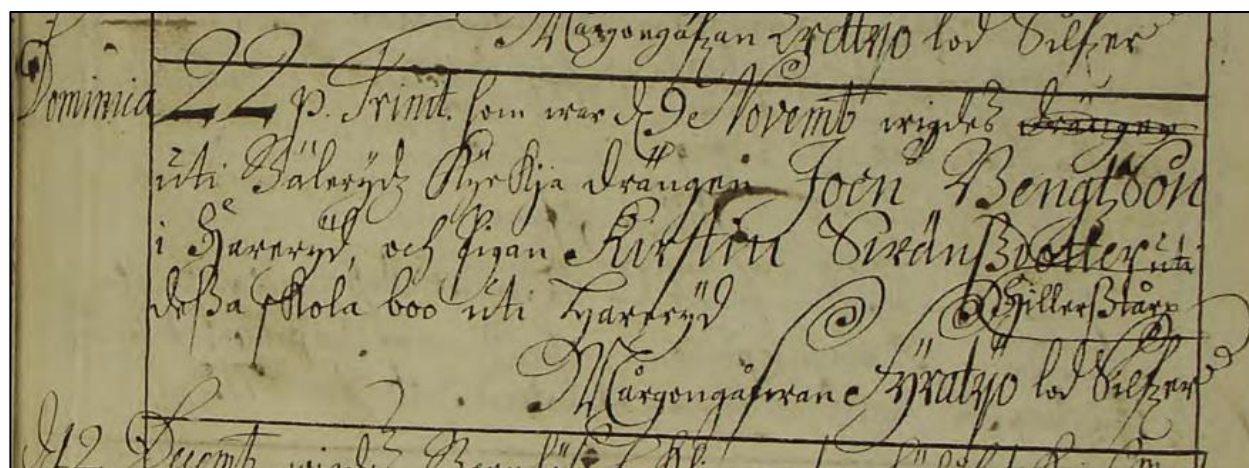 Morgongåfwan Trettijo lod Silfwer
Dominica 22 p. Trinit. som war d. 9 Novemb wigdes drängen
uti Bålerydz Kyrkja drängen Joen Bengtzson
i Hareryd, och pigan Kirstin Swänßdotter uti
deßa skola boo uti Hareryd Hillerßtårp
Morgongåfwan Fyratijo lod Silfwer
d 12 Decemb wigdes